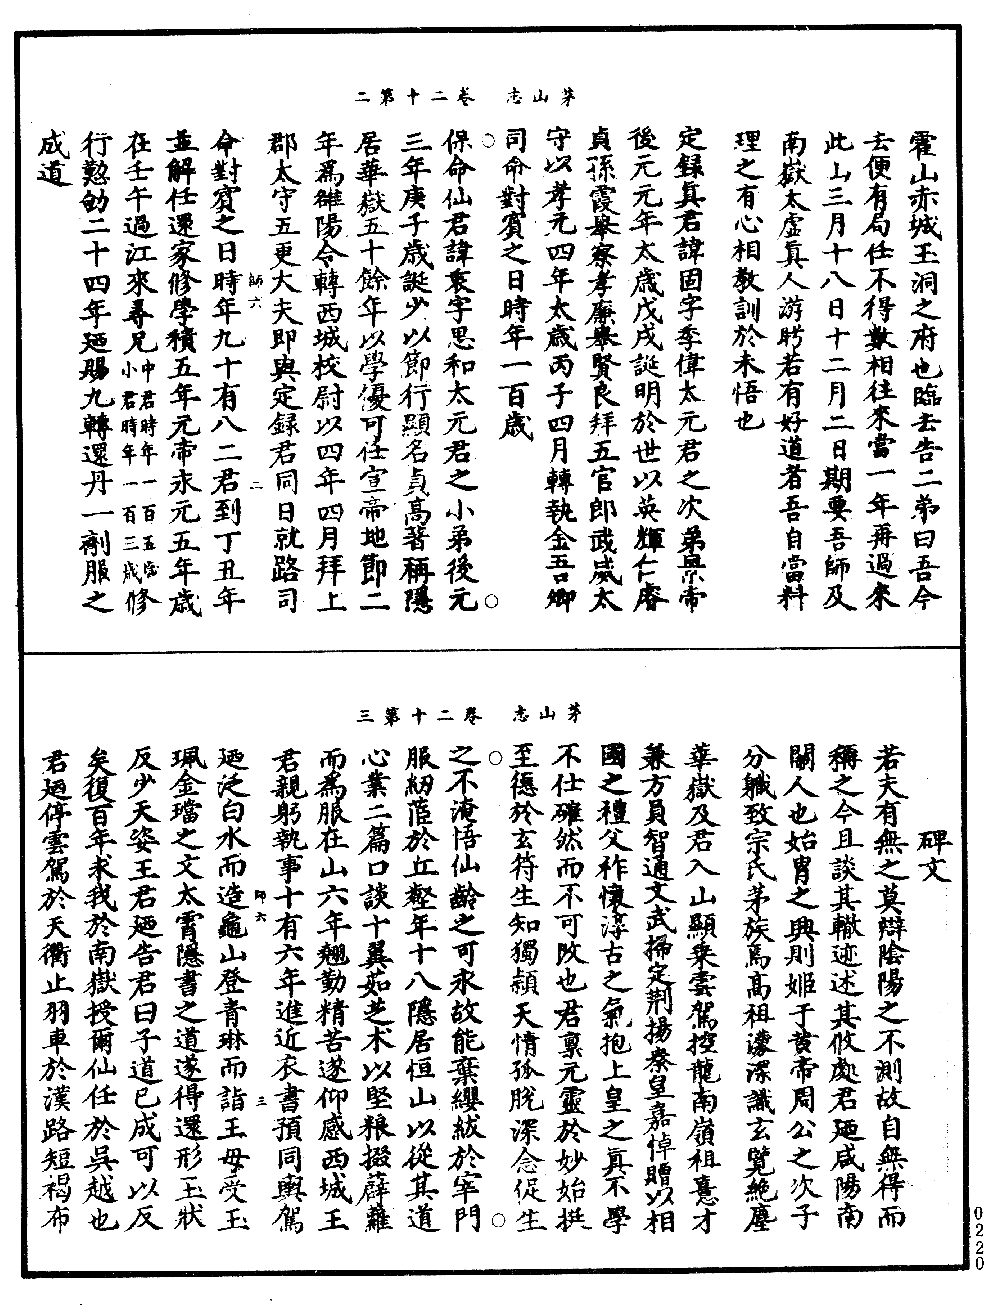 茅山志　卷二十第二
霍山赤城玉洞之府也臨去告二弟曰吾今
去便有局任不得數相往來當一年再過來
此山三月十八日十二月二日期要吾師及
南嶽太虛真人游盻若有好道者吾自當料
理之有心相教訓於未悟也
定録真君諱固字季偉太元君之次弟景帝
後元元年太歲戊戌誕明於世以英輝仁睿
貞孫霞舉察孝廉舉賢良拜五官郎武威太
守以孝元四年太歲丙子四月轉執金吾卿
司命對賓之日時年一百歲
保命仙君諱衷字思和太元君之小弟後元
三年庚子歲誕少以節行顯名貞高著稱隱
居華嶽五十餘年以學優可任宣帝地節二
年爲雒陽令轉西城校尉以四年四月拜上
郡太守五更大夫即與定録君同日就路司
師六　二
命對賓之日時年九十有八二君到丁丑年
並解任還家修學積五年元帝永元五年歲
在壬午過江來尋兄中君時年一百五歲小君時年一百三歲修
行懃劬二十四年廼賜九轉還丹一劑服之
成道
茅山志　卷二十第三
碑文
若夫有無之莫辯陰陽之不測故自無得而
稱之今且談其轍迹述其攸處君廼咸陽南
關人也始胄之興則姬于黄帝周公之次子
分軄致宗氏茅族焉高祖濛深識玄覽絶塵
華嶽及君入山顯乗雲駕控龍南嶺祖憙才
兼方員智通文武掃定荆揚秦皇嘉悼贈以相
國之禮父祚懷淳古之氣抱上皇之真不學
不仕確然而不可攺也君禀元靈於妙始挺
至德於玄符生知獨頴天情孤脫深念促生
之不淹悟仙齡之可永故能棄纓紱於宰門
服紉蒞於丘壑年十八隱居恒山以從其道
心業二篇口談十翼茹芝术以堅粮掇薜蘿
而爲服在山六年翹勤精苦遂仰感西城王
君親躬執事十有六年進近衣書預同輿駕
師六　三
廼泛白水而造龜山登青琳而詣王母受玉
珮金璫之文太霄隱書之道遂得還形玉狀
反少天姿王君廼告君曰子道已成可以反
矣復百年求我於南嶽授爾仙任於吳越也
君廼停雲駕於天衢止羽車於漢路短褐布
0220